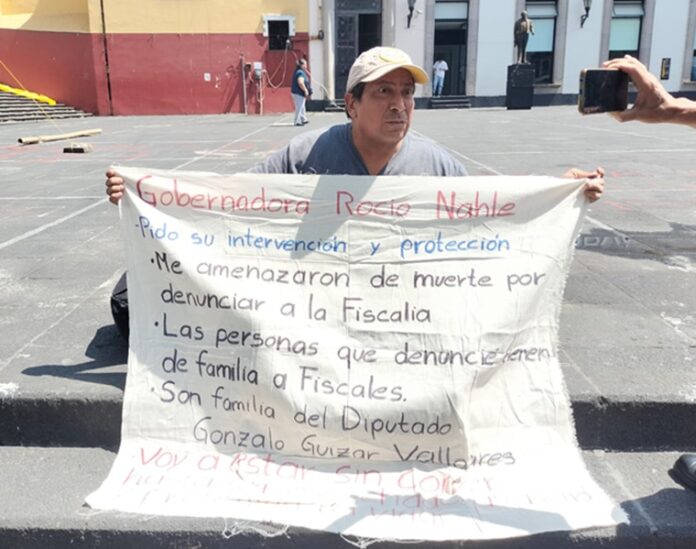 Gobernadora Rocio Nahle
·Pido su intervención y protección
·Me amenazaron de muerte por
denunciar a la Fiscalia
·Las personas que denuncie tienen
de familia a Fiscales.
·Son familia del Diputado
Gonzalo Guizar Vallares
Voy a estar sin comer